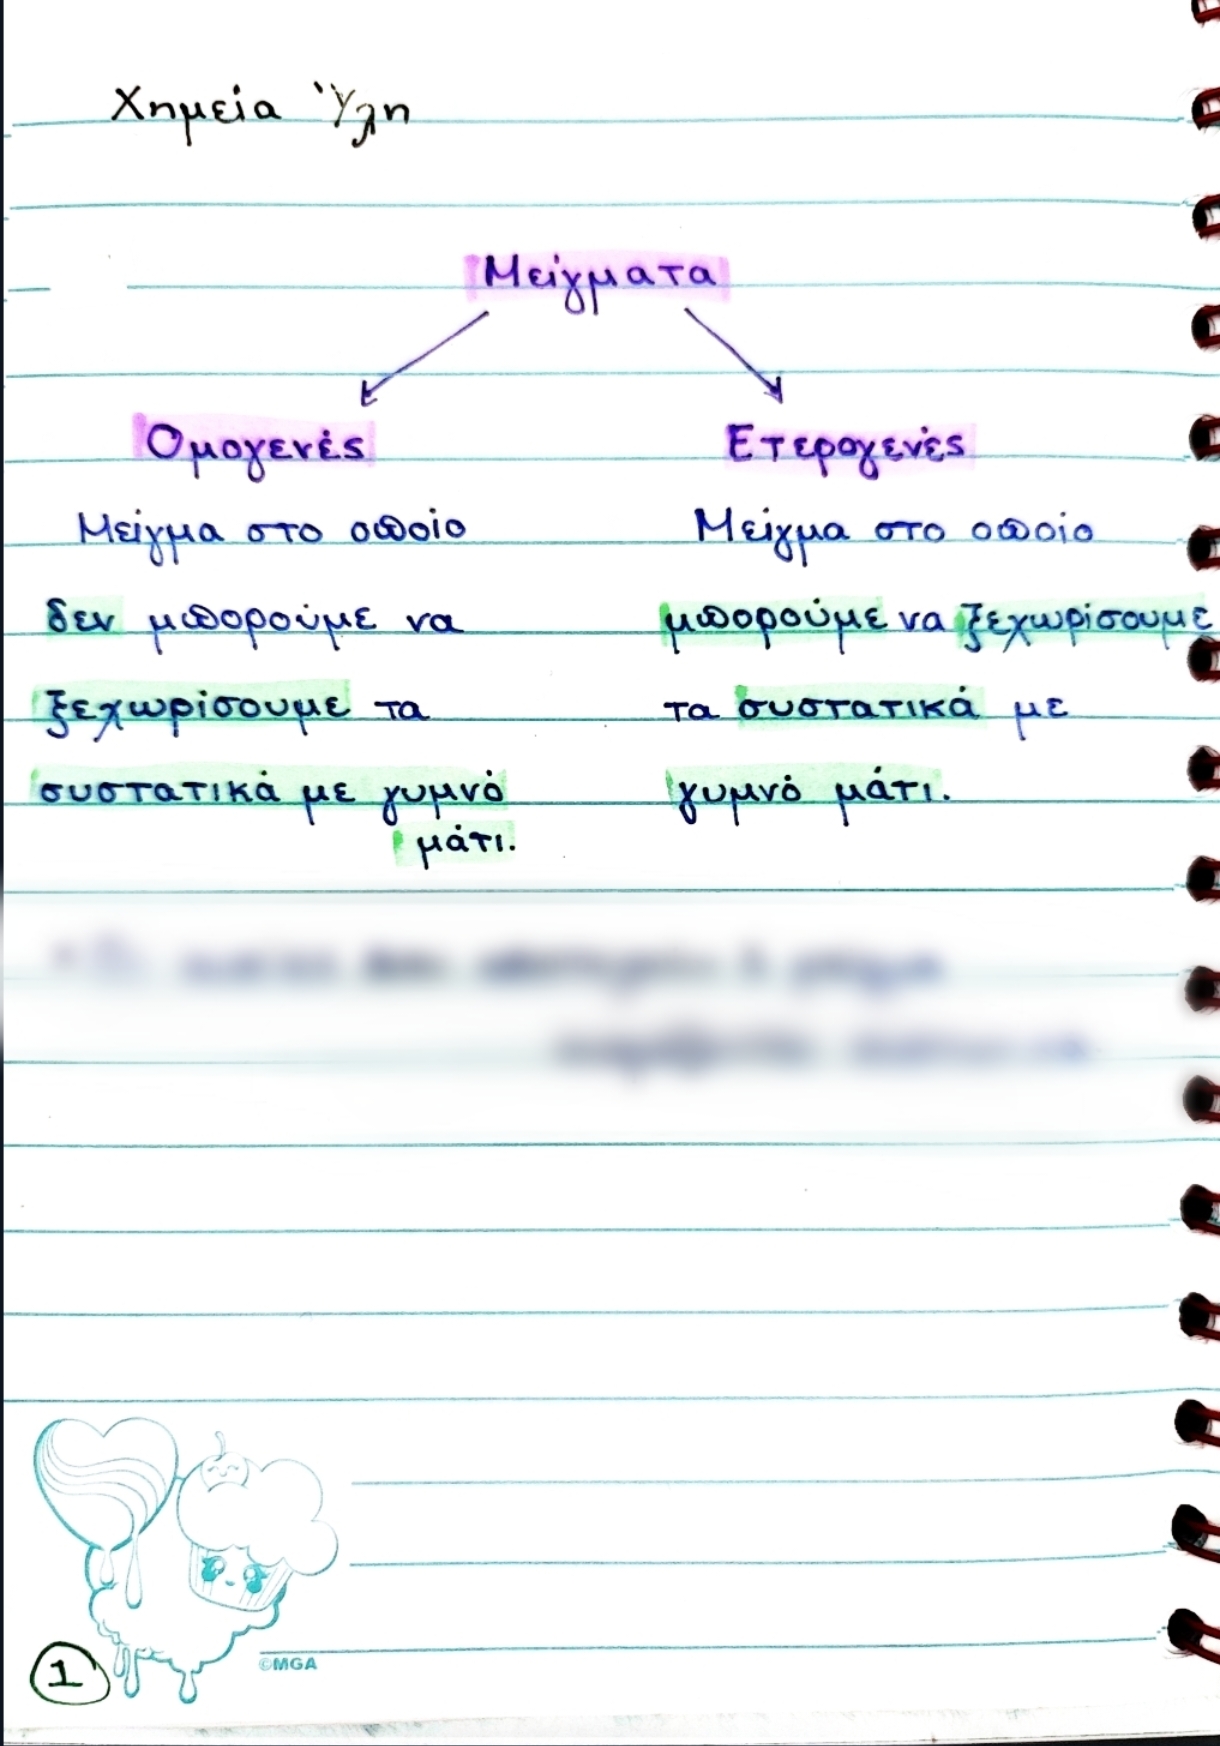 Χημεία Ύλη
Μείγματα
Ομογενές
Ετερογενές
Μείγμα στο οποίο
δεν μπορούμε να
ξεχωρίσουμε τα
συστατικά με γυμνό
μάτι.
Μείγμα στο οποίο
μπορούμε να ξεχωρίσουμε
τα συστατικά με
γυμνό μάτι.
©MGA
1